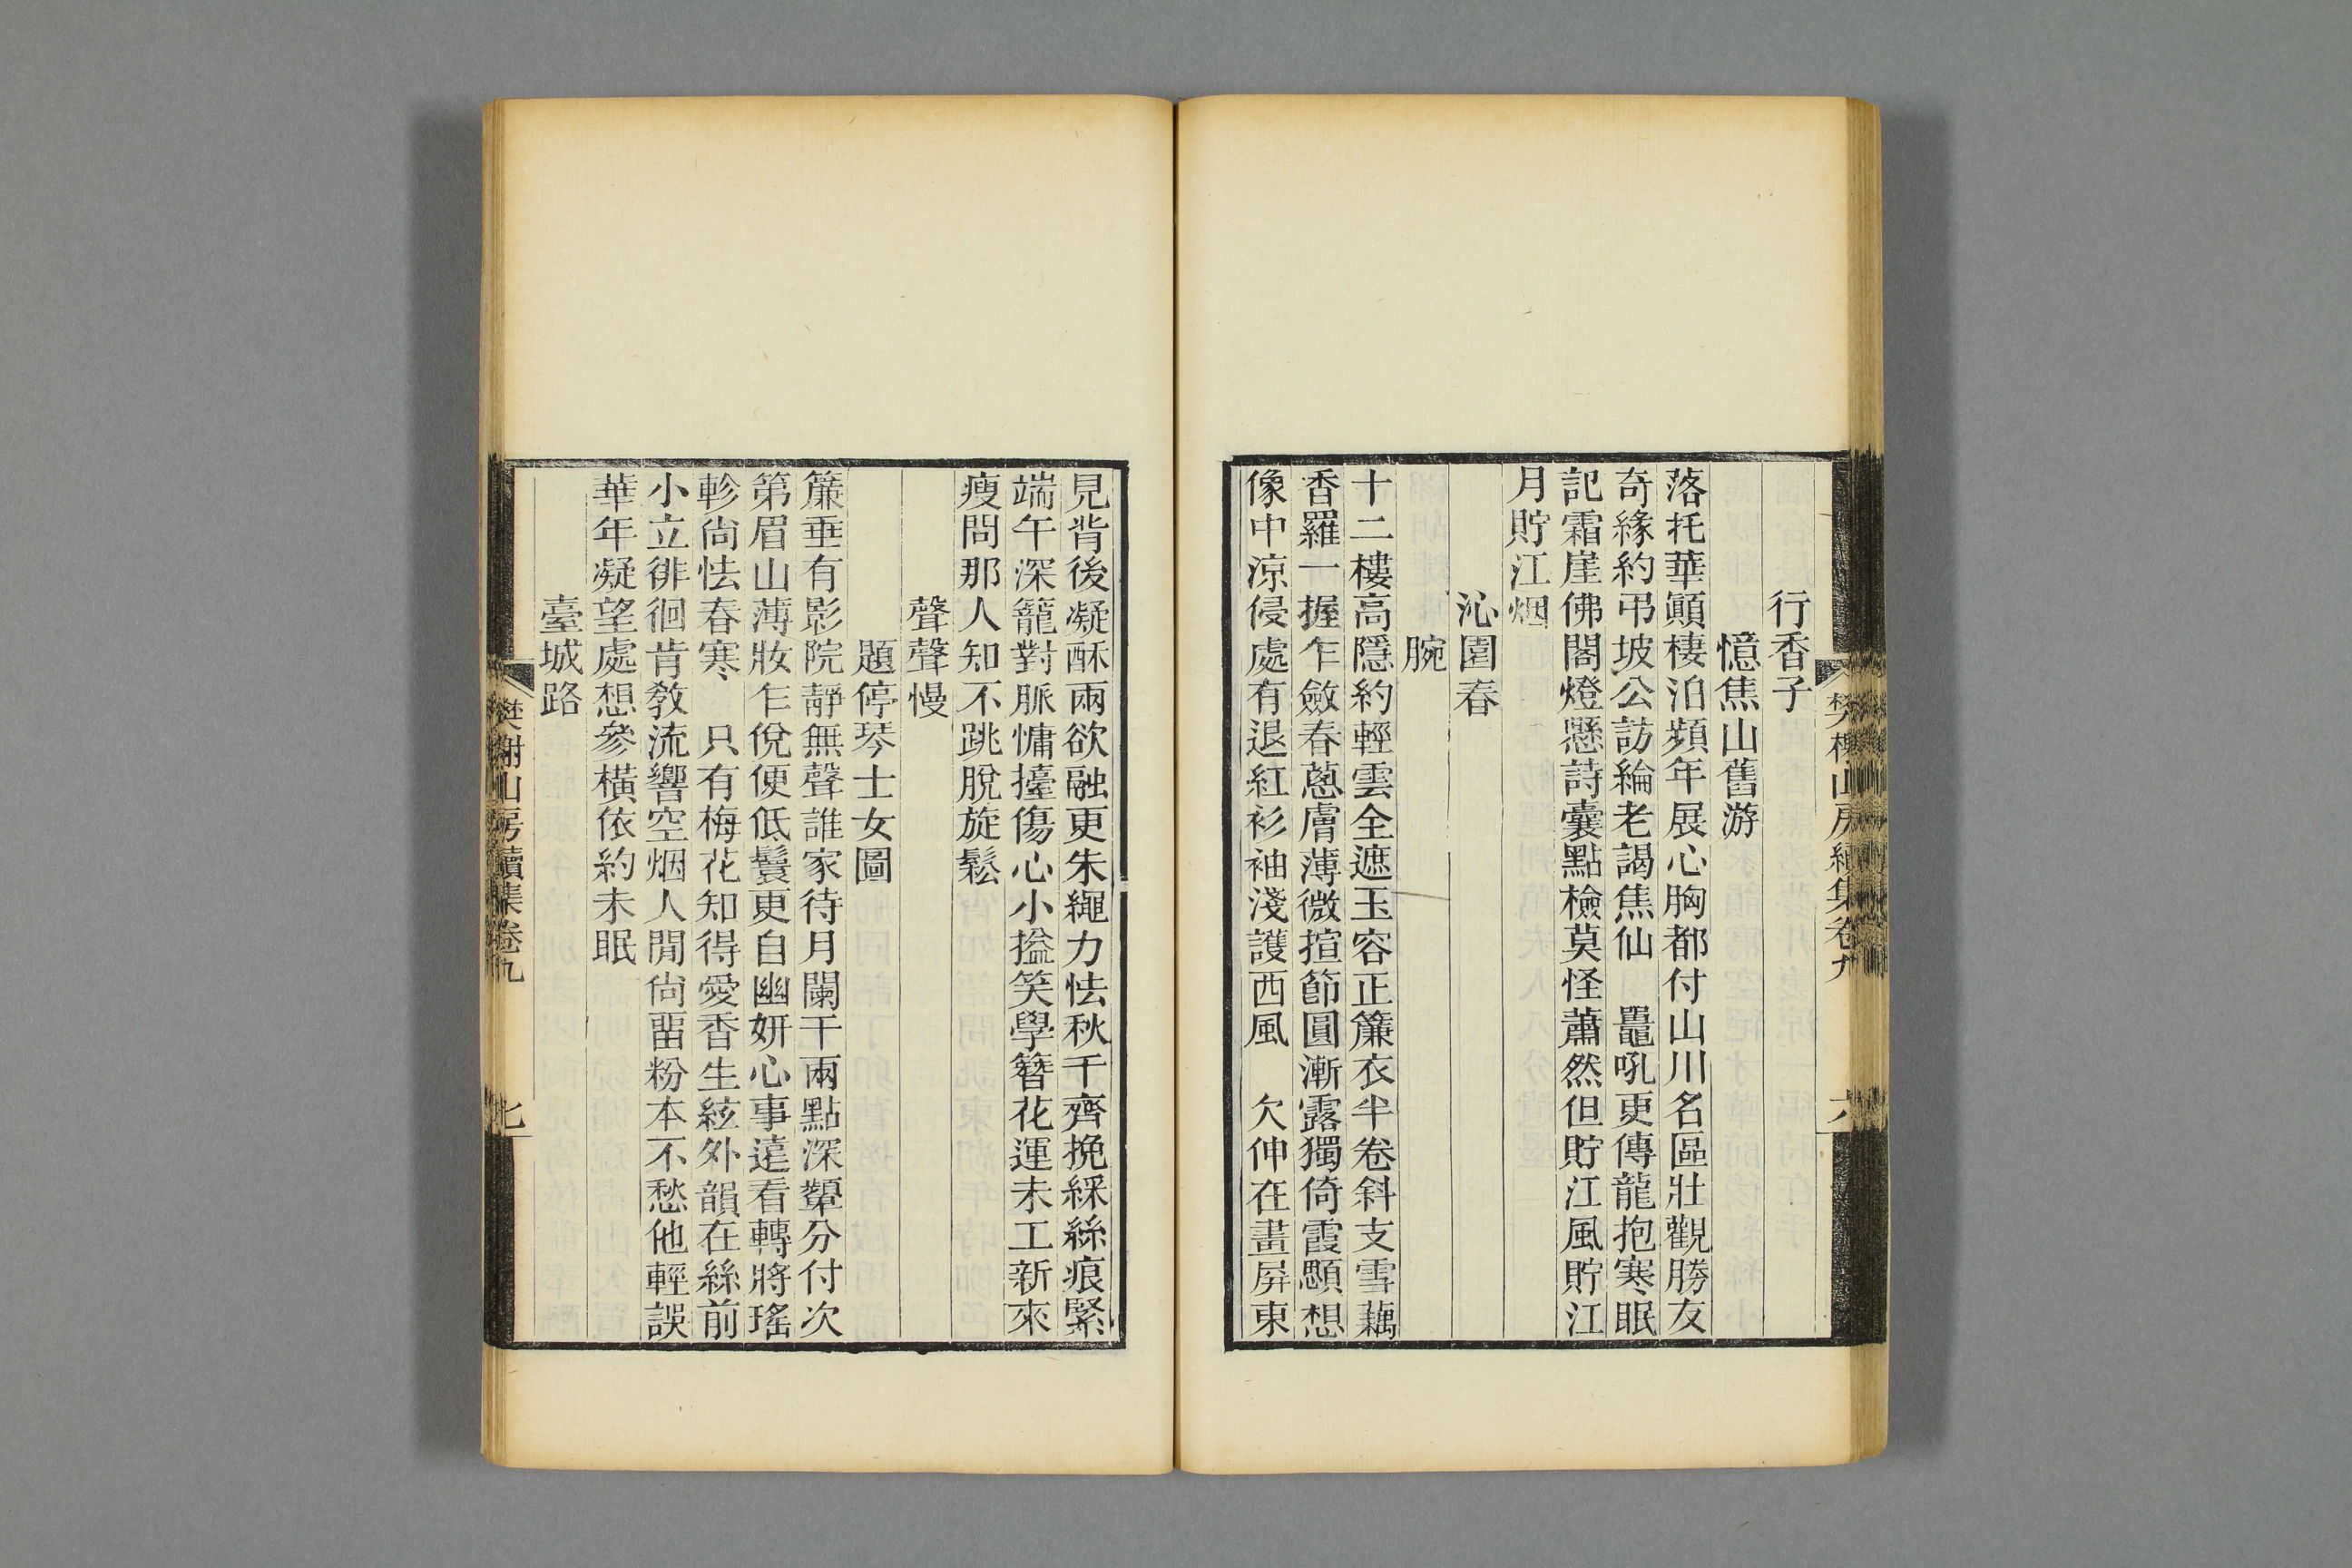 行香子
憶焦山舊游
落托華顚棲泊頻年展心胸都付山川名區壯觀勝友
奇緣約弔坡公訪綸老謁焦仙　鼉吼更傳龍抱寒眠
記霜崖佛閣燈懸詩囊點檢莫怪蕭然但貯江風貯江
月貯江烟
沁園春
腕
十二樓高隱約輕雲全遮玉容正簾衣半卷斜支雪藕
香羅一握乍斂春蔥膚薄微揎節圓漸露獨倚霞顋想
像中涼侵處有退紅衫袖淺護西風　欠伸在畫屏東
樊榭山房續集卷九
六
見背後凝酥兩欲融更朱繩力怯秋千齊挽綵絲痕緊
端午深籠對脈慵擡傷心小搤笑學簪花運未工新來
瘦問那人知不跳脫旋鬆
聲聲慢
題停琴士女圖
簾垂有影院靜無聲誰家待月闌干兩點深顰分付次
第眉山薄妝乍侻便低鬟更自幽妍心事遠看轉將瑤
軫尙怯春寒　只有梅花知得愛香生絃外韻在絲前
小立徘徊肯敎流響空烟人閒尙畱粉本不愁他輕誤
華年凝望處想參橫依約未眠
臺城路
樊榭山房續集卷九
七